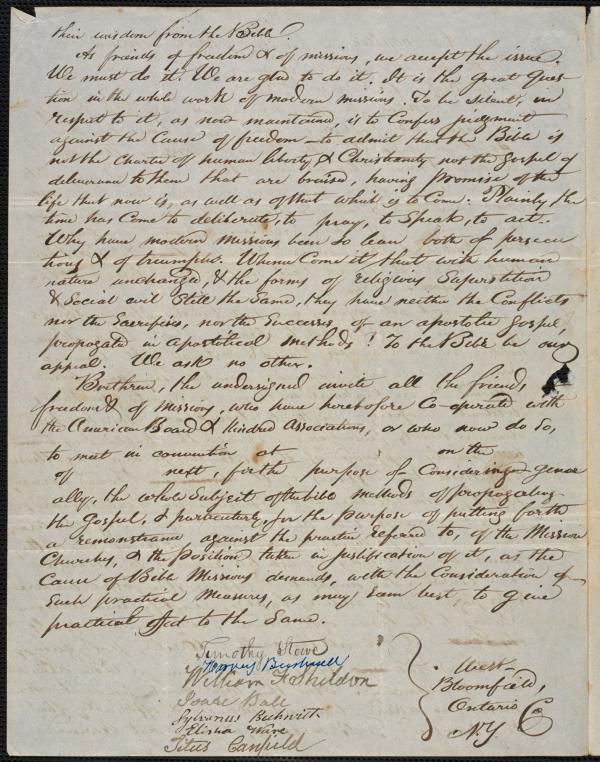 their wisdom from the Bible.
As friends of freedom & of missions, we accept the issue.
We must do it. We are glad to do it. It is the great Ques-
tion in the whole work of modern missions. To be silent, in
respect to it, as now maintained, is to confess judgment
against the Cause of freedom—to admit that the Bible is
not the Charter of human liberty, & Christianity not the gospel of
deliverance to them that are bruised, having Promise of the
life that now is, as well as of that which is to Come. Plainly, the
time has Come to deliberate, to pray, to Speak, to act.
Why have modern missions been so lean, both of persecu
tions & of triumphs. Whence Come it, that with human
nature unchanged, & the forms of religious Superstition
& Social evil Still the Same, they have neither the Conflicts
nor the Sacrifices, nor the Successes, of an apostolic Gospel,
propagated in apostolical methods? To the Bible be our
appeal. We ask no other.
Brethren, the undersigned invite all the friends
freedom & of missions, who have heretofore Co-operated with
the American Board & Kindred Associations, or who now do so,
to meet in convention at on the
of next, for the purpose of Considering gener
ally, the whole Subject of the bible methods of propagating
the Gospel, & particularly, for the purpose of putting forth
a remonstrance against the practice refered to, of the Mission
Churches, & the Position taken in justification of it, as the
Cause of Bible Missions demands, with the Consideration of
Such practical Measures, as may Seem best to give
practical effect to the Same.
Timothy Stowe
Harvey Bushnell
William F Sheldon
Isaac Ball
Sylvanus Beckwith
Elisha Ware
Titus Canfield
West
Bloomfield,
Ontario Co
N.Y